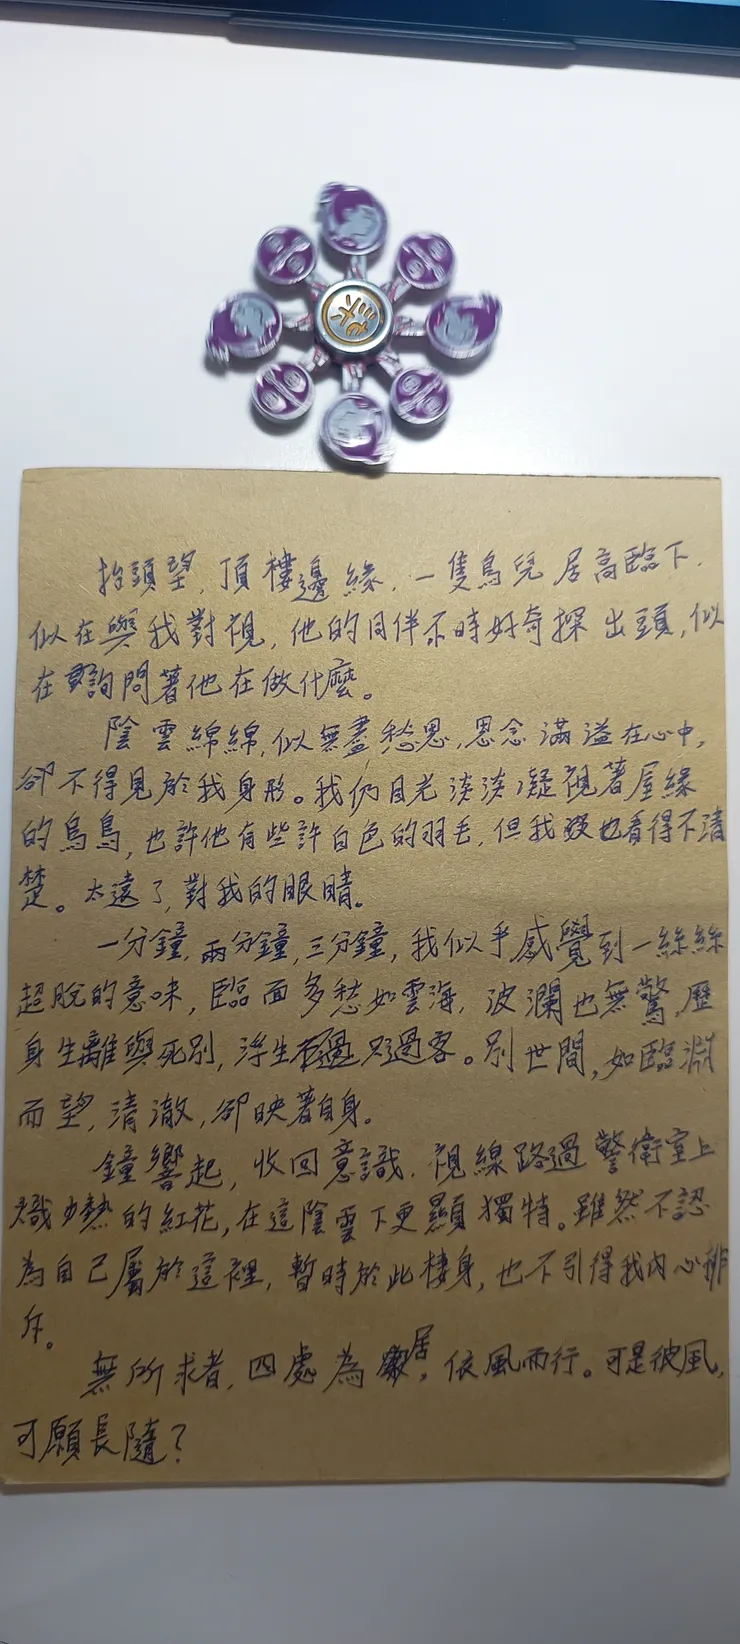 抬頭望,頂樓邊緣,一隻鳥兒居高臨下,
似在與我對視,他的同伴不時好奇探出頭,似
在詢問著他在做什麼。
陰雲綿綿,似無盡愁思,思念滿溢在心中,
卻不得見於我身形。我仍目光淡淡凝視著屋緣
的鳥鳥,也許他有些許白色的羽毛,但我也看得不清
楚。太遠了,對我的眼睛。
一分鐘,兩分鐘,三分鐘,我似乎感覺到一絲絲
超脫的意味,臨面多愁如雲海,波瀾也無驚,歷
身生離與死別,浮生只過客。別世間,如臨淵
而望,清澈,卻映著自身。
鐘響起,收回意識,視線路過警衛室上
熾熱的紅花,在這陰雲下更顯獨特。雖然不認
為自己屬於這裡,暫時於此棲身,也不引得我內心排
斥。
無所求者,四處為居,依風而行。可是彼風,
可願長隨?